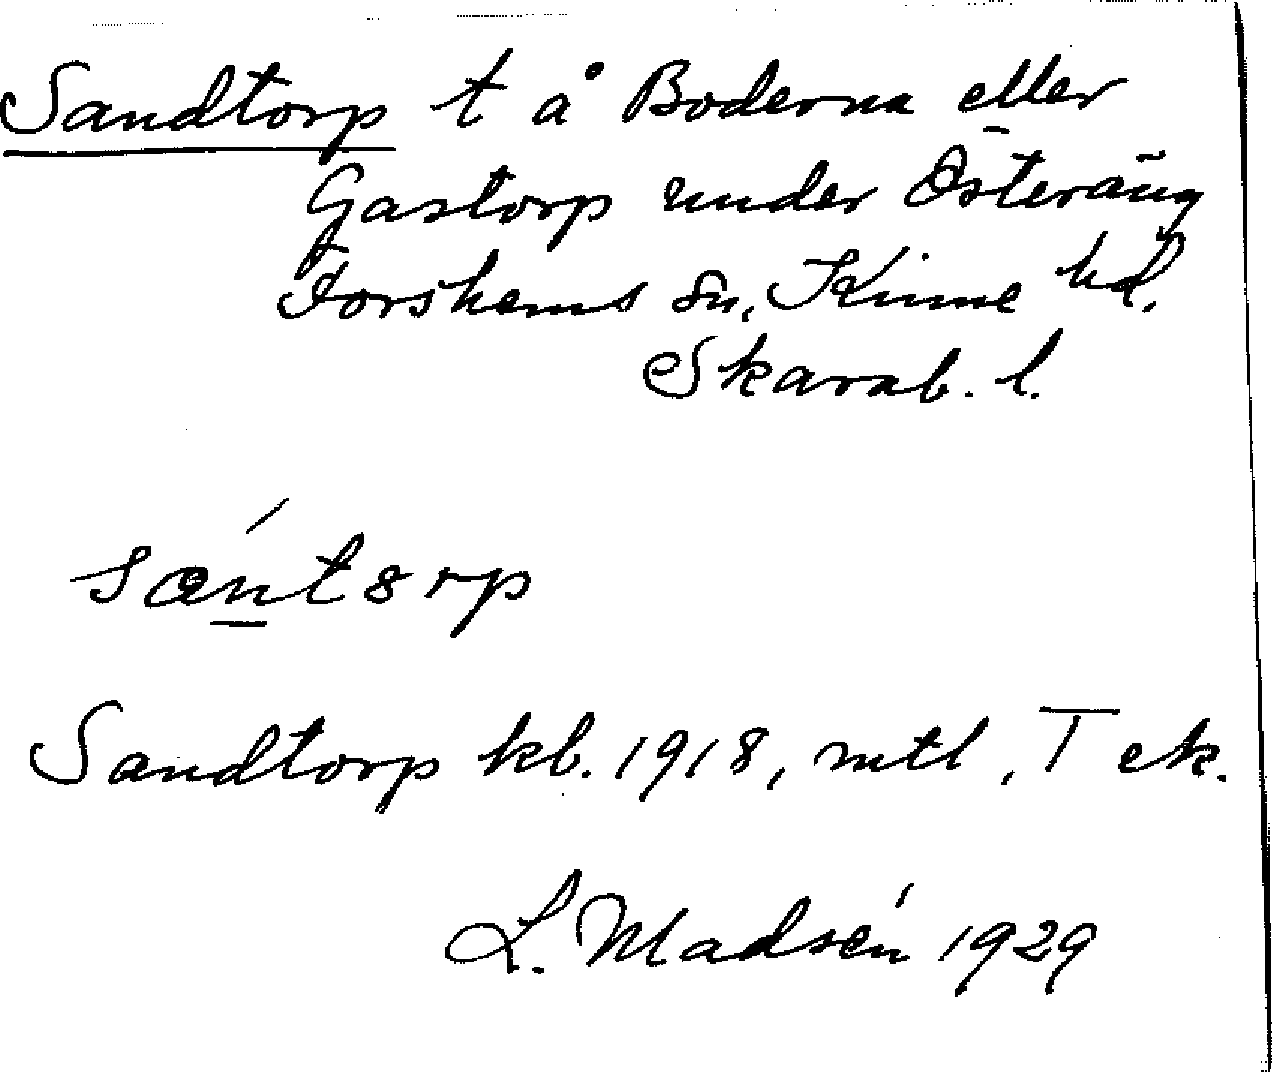 Sandtorp t å Boderna eller
Gastorp under Österäng
Forshems sn, Kinne hd.
Skarab. l.
sǽntorp
Sandtorp kb. 1918, mtl, T ek.
L. Madsén 1929